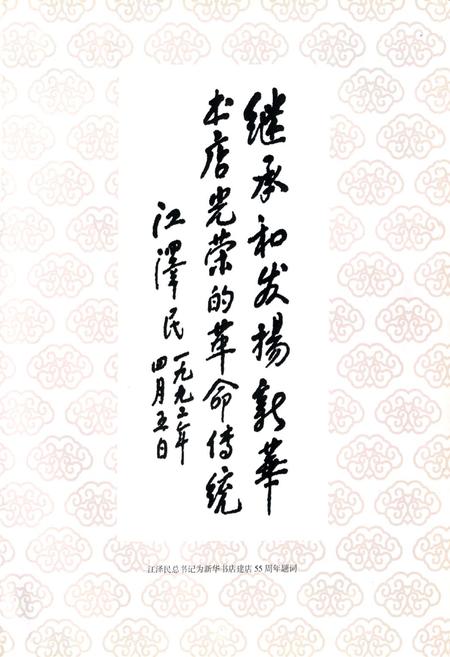 继承和发扬新華
书店光荣的革命传统
江澤民
一九九二年
四月五日
江泽民总书记为新华书店建店 55 周年题词